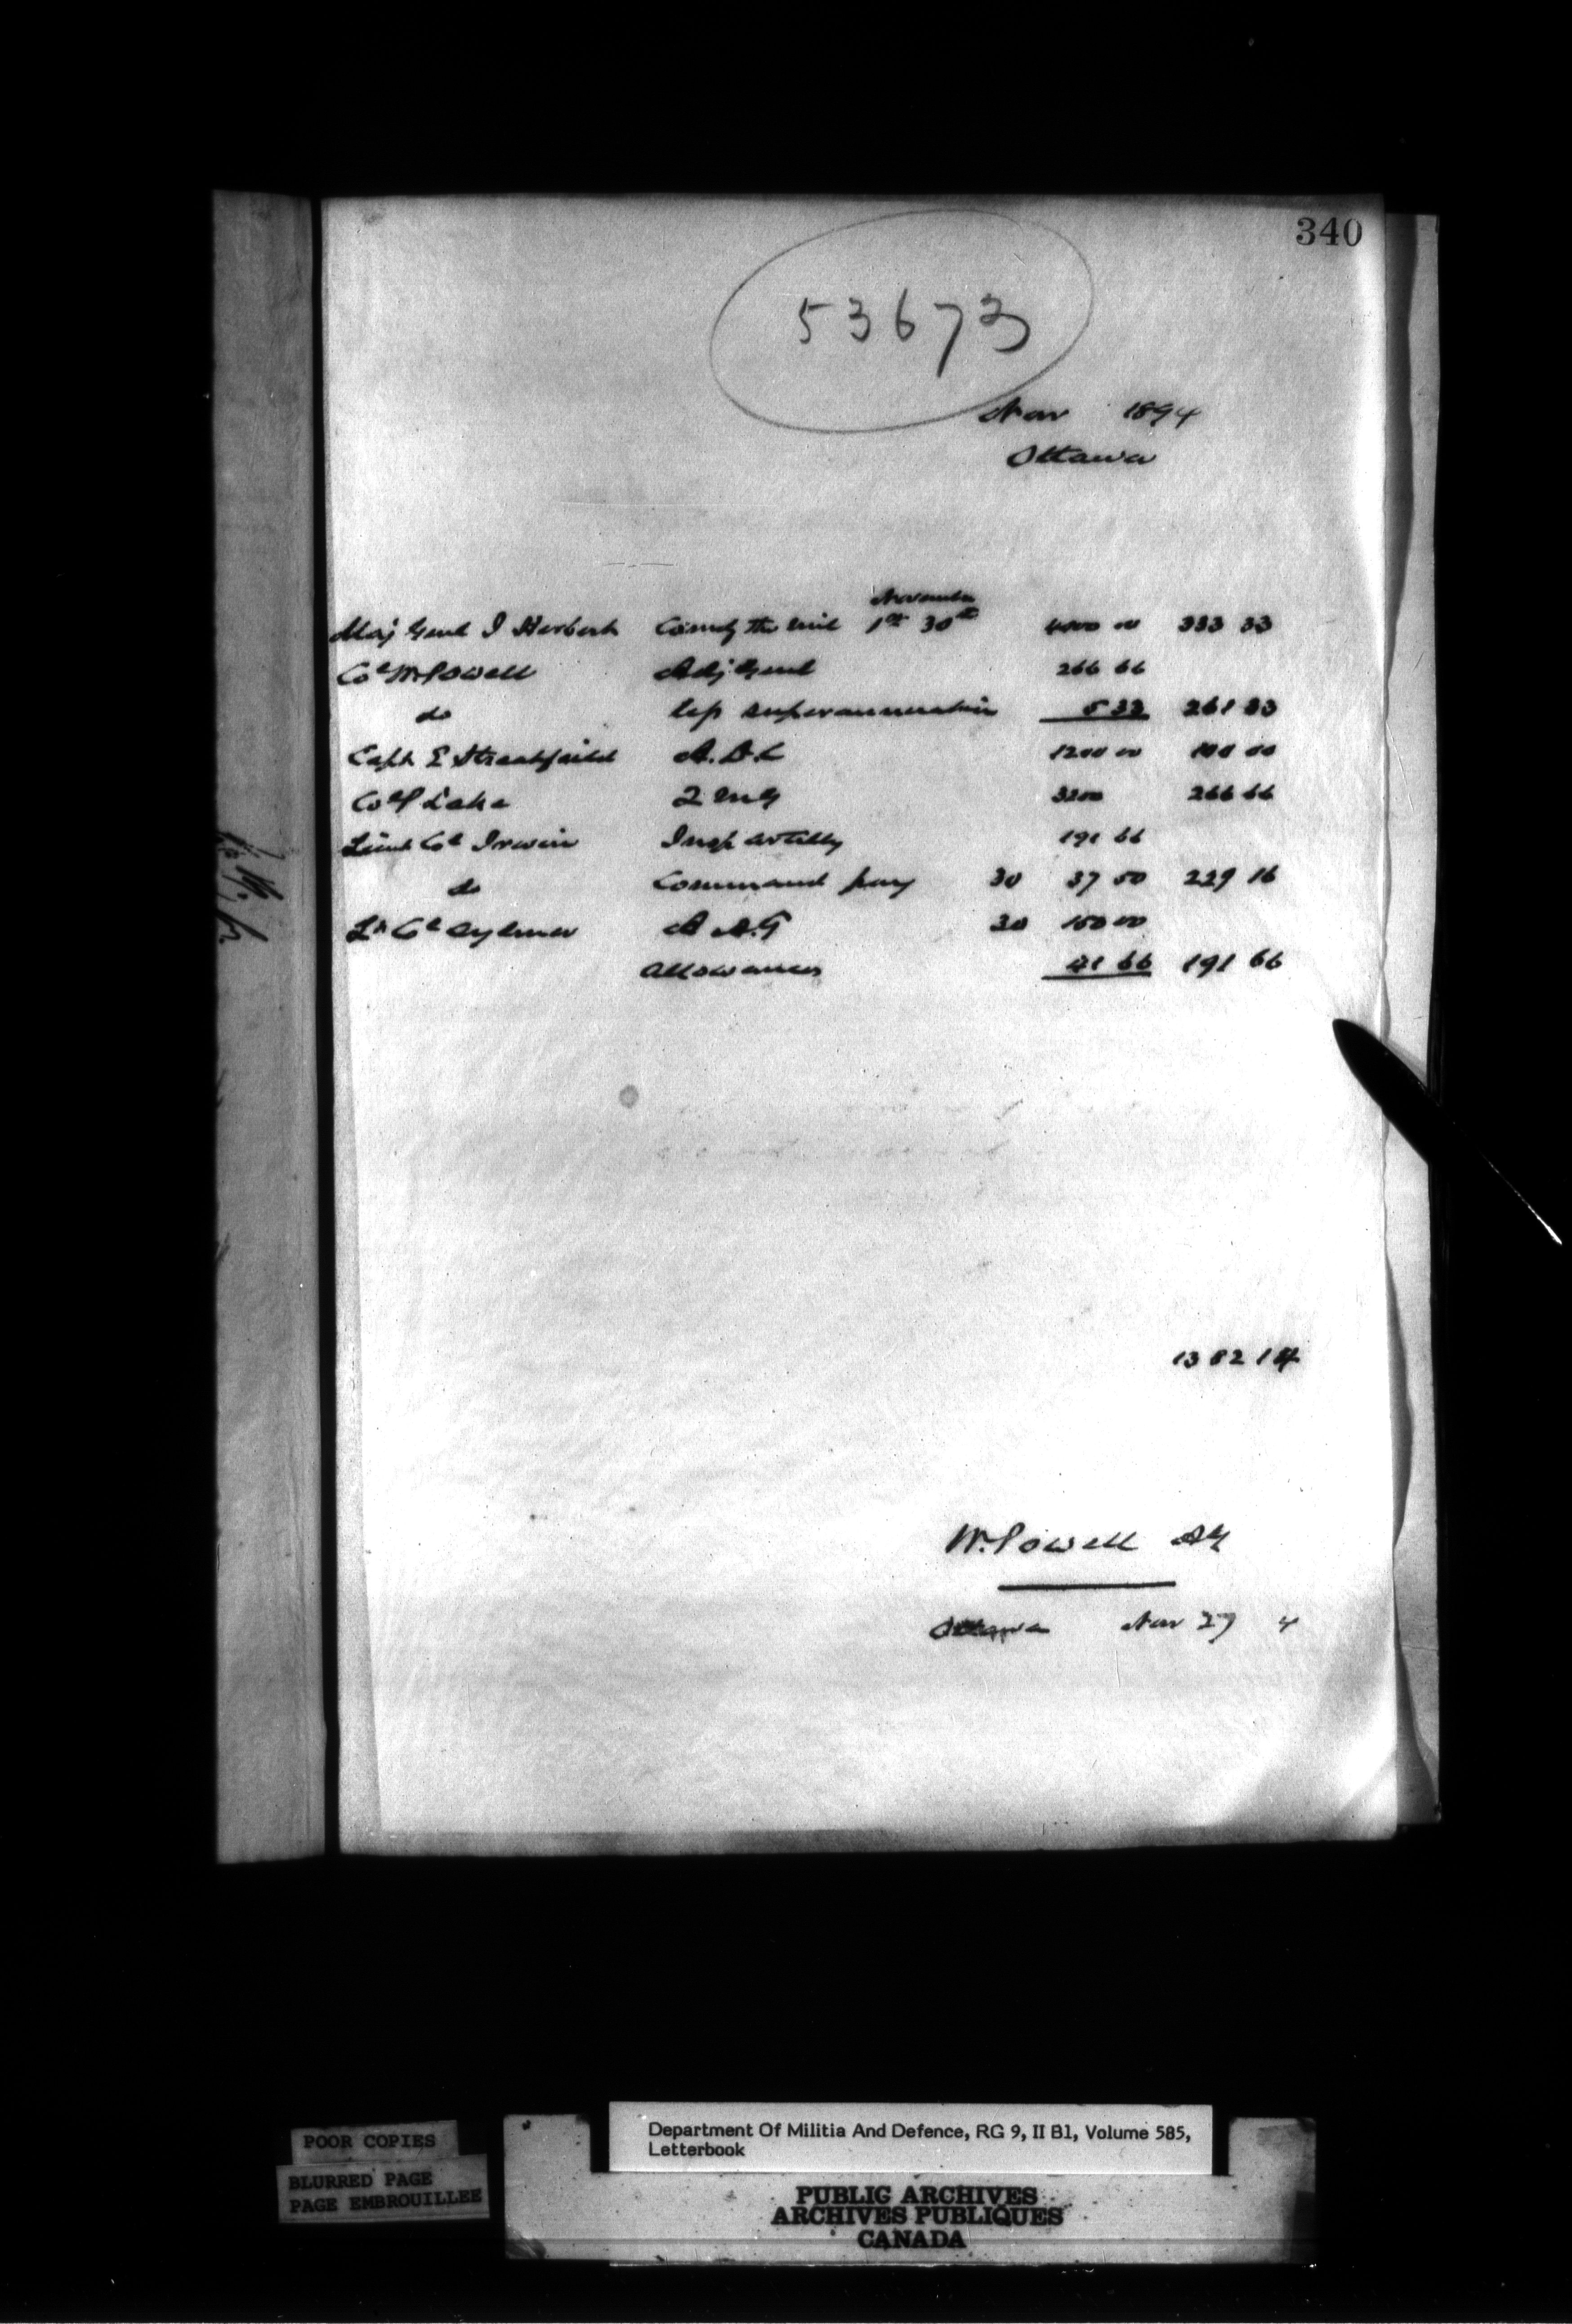 340
53673
Nov 1894
Ottawa
November
Maj Genl I Herbert Comdg the Mil 1st 30th 4000 00 333 33
Col W Powell Adj Genl 266 66
do less superannuation 5 33 261 33
Capt E Streatfeild A.D.C 1200 00 100 00
Col P Lake Q M G 3200 266 66
Lieut Col Irwin Insp Artilly 191 66
do Command pay 30 37 50 229 16
Lt Col Aylmer A A.G 30 150 00
Allowances 41 66 191 66
1382 14
W. Powell AG
Ottawa Nov 27 4
POOR COPIES
BLURRED PAGE
PAGE EMBROUILLEE
Department Of Militia And Defence, RG 9, II B1, Volume 585,
Letterbook
PUBLIC ARCHIVES
ARCHIVES PUBLIQUES
CANADA